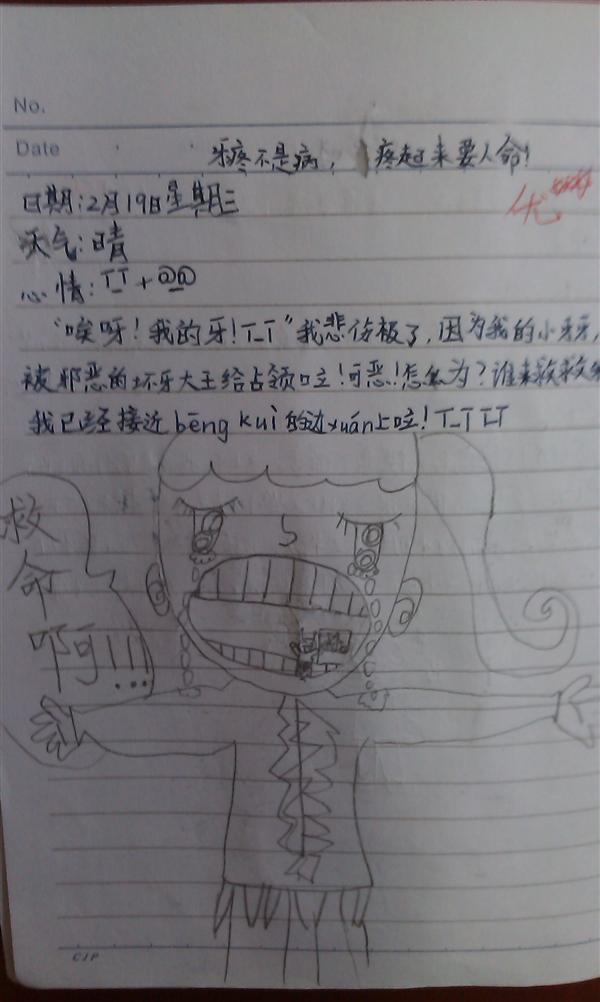 No.
Date
牙疼不是病，疼起来要人命！
日期：2月19日星期三
优
天气：晴
心情：T_T+@_@
"唉呀！我的牙！T_T"我悲伤极了，因为我的小牙牙，
被邪恶的坏牙大王给占领啦！可恶！怎么为？谁来救救
我已经接近bēng kuì的边yuán上啦！T_T T_T
救
命
啊!!!
CIP